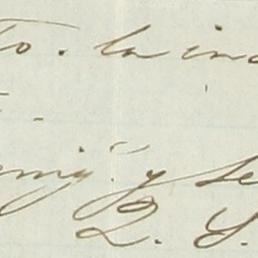 to. la ind
amigº. y se
Q. S.